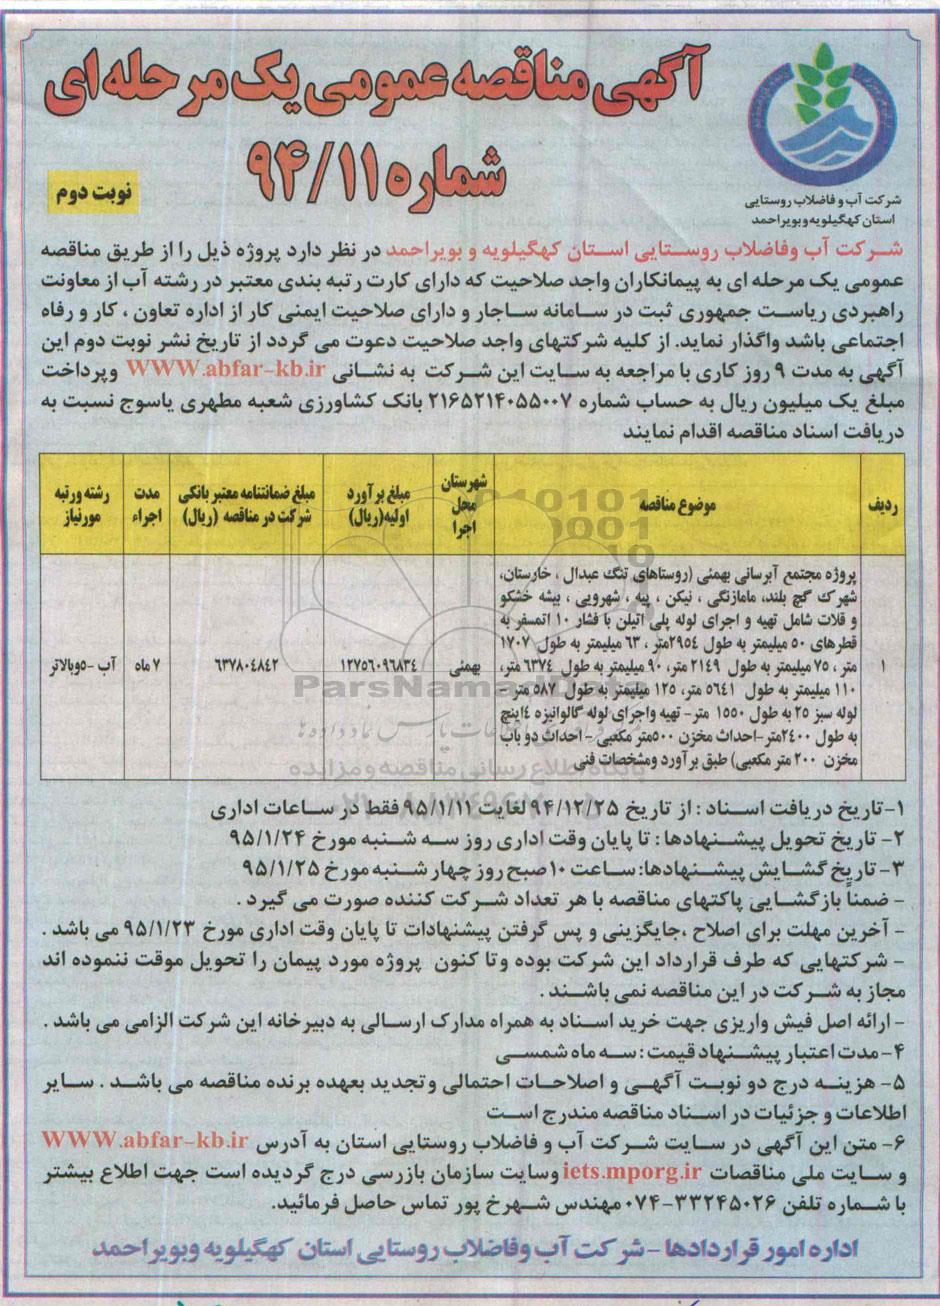 آگهی مناقصه عمومی یک مرحله ای
شماره ۹۴/۱۱
نوبت دوم
شرکت آب و فاضلاب روستایی
استان کهگیلویه و بویراحمد
شرکت آب وفاضلاب روستایی استان کهگیلویه و بویراحمد در نظر دارد پروژه ذیل را از طریق مناقصه
عمومی یک مرحله ای به پیمانکاران واجد صلاحیت که دارای کارت رتبه بندی معتبر در رشته آب از معاونت
راهبردی ریاست جمهوری ثبت در سامانه ساجار و دارای صلاحیت ایمنی کار از اداره تعاون ، کار و رفاه
اجتماعی باشد واگذار نماید. از کلیه شرکتهای واجد صلاحیت دعوت می گردد از تاریخ نشر نوبت دوم این
آگهی به مدت ۹ روز کاری با مراجعه به سایت این شرکت به نشانی WWW.abfar-kb.ir وپرداخت
مبلغ یک میلیون ریال به حساب شماره ۲۱۶۵۲۱۴۰۵۵۰۰۷ بانک کشاورزی شعبه مطهری یاسوج نسبت به
دریافت اسناد مناقصه اقدام نمایند
ردیف
موضوع مناقصه
شهرستان محل اجرا
مبلغ برآورد اولیه(ریال)
مبلغ ضمانتنامه معتبر بانکی شرکت در مناقصه (ریال)
مدت اجراء
رشته ورتبه مورنیاز
۱
پروژه مجتمع آبرسانی بهمئی (روستاهای تنگ عبدال ، خارستان،
شهرک گچ بلند، مامازنگی ، نیکن ، پیه ، شهرویی ، بیشه خشکو
و قلات شامل تهیه و اجرای لوله پلی اتیلن با فشار ۱۰ اتمسفر به
قطرهای ۵۰ میلیمتر به طول ۲۹۵٤متر ، ۶۳ میلیمتر به طول ۱۷۰۷
متر ، ۷۵ میلیمتر به طول ۲۱۴۹ متر، ۹۰ میلیمتر به طول ۶۳۷۴ متر،
۱۱۰ میلیمتر به طول ۵۶۴۱ متر، ۱۲۵ میلیمتر به طول ۵۸۷ متر -
لوله سبز ۲۵ به طول ۱۵۵۰ متر- تهیه واجرای لوله گالوانیزه ٤اینچ
به طول ۲۴۰۰متر-احداث مخزن ۵۰۰متر مکعبی - احداث دو باب
مخزن ۲۰۰ متر مکعبی) طبق برآورد ومشخصات فنی
بهمئی
۱۲۷۵۶۰۹۶۸۳٤
۶۳۷۸۰٤۸٤۲
۷ ماه
آب -دوبالاتر
ParsNamadData
پایگاه اطلاع رسانی مناقصه و مزایده
۱-تاریخ دریافت اسناد : از تاریخ ۹۴/۱۲/۲۵ لغایت ۹۵/۱/۱۱ فقط در ساعات اداری
۲- تاریخ تحویل پیشنهادها : تا پایان وقت اداری روز سه شنبه مورخ ۹۵/۱/۲۴
۳- تاریخ گشایش پیشنهادها: ساعت ۱۰صبح روز چهارشنبه مورخ ۹۵/۱/۲۵
- ضمناً بازگشایی پاکتهای مناقصه با هر تعداد شرکت کننده صورت می گیرد .
- آخرین مهلت برای اصلاح ،جایگزینی و پس گرفتن پیشنهادات تا پایان وقت اداری مورخ ۹۵/۱/۲۳ می باشد .
- شرکتهایی که طرف قرارداد این شرکت بوده وتا کنون پروژه مورد پیمان را تحویل موقت ننموده اند
مجاز به شرکت در این مناقصه نمی باشند .
- ارائه اصل فیش واریزی جهت خرید اسناد به همراه مدارک ارسالی به دبیرخانه این شرکت الزامی می باشد .
۴-مدت اعتبار پیشنهاد قیمت : سه ماه شمسی
۵- هزینه درج دو نوبت آگهی و اصلاحات احتمالی وتجدید بعهده برنده مناقصه می باشد . سایر
اطلاعات و جزئیات در اسناد مناقصه مندرج است
۶- متن این آگهی در سایت شرکت آب و فاضلاب روستایی استان به آدرس WWW.abfar-kb.ir
و سایت ملی مناقصات iets.mporg.ir وسایت سازمان بازرسی درج گردیده است جهت اطلاع بیشتر
با شماره تلفن ۳۳۲۴۵۰۲۶-۰۷۴ مهندس شهرخ پور تماس حاصل فرمائید.
اداره امور قراردادها - شرکت آب وفاضلاب روستایی استان کهگیلویه وبویراحمد